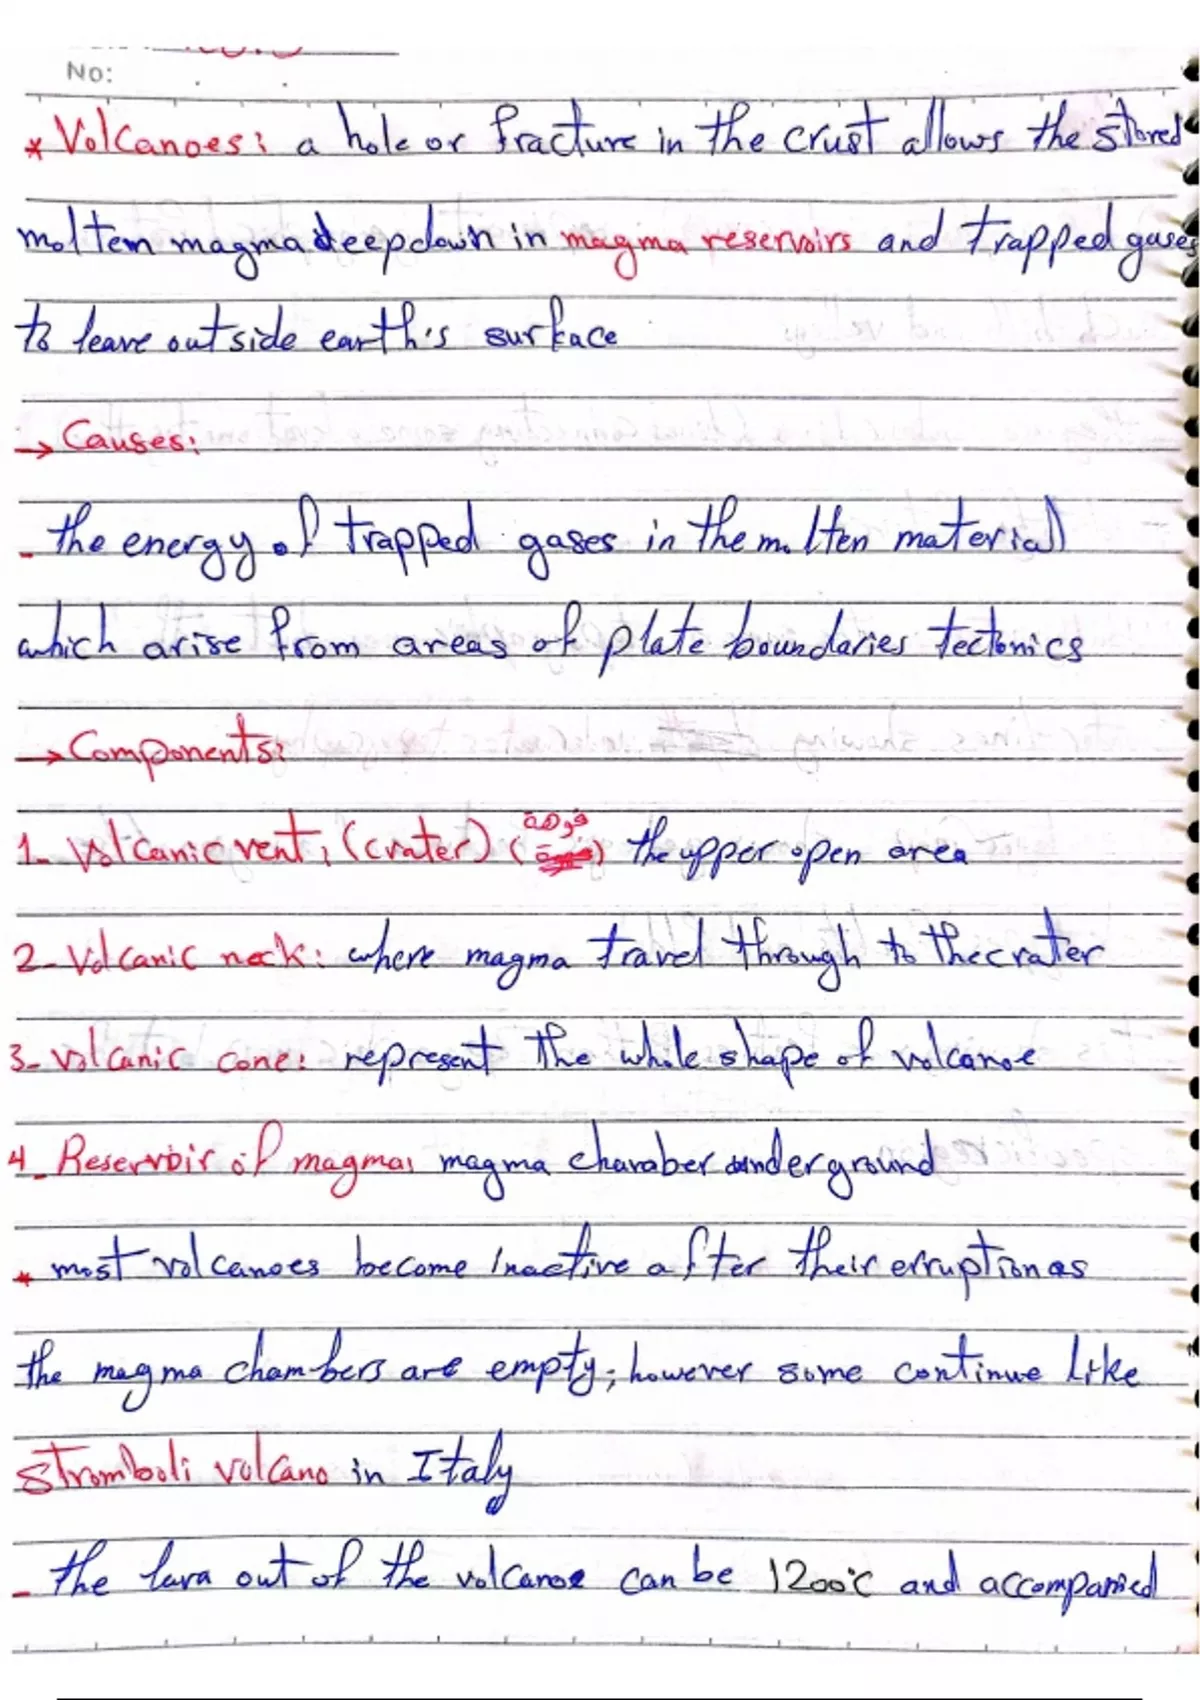 No:
* Volcanoes: a hole or fracture in the crust allows the stored
molten magma deep down in magma reservoirs and trapped gases
to leave outside earth's surface
→ Causes:
- the energy of trapped gases in the molten material
which arise from areas of plate boundaries tectonics
→ Components:
1- Volcanic vent: (crater) (فوهة) the upper open area
2- Volcanic neck: where magma travel through to the crater
3- volcanic cone: represent the whole shape of volcanoe
4- Reservoir of magma: magma chamber underground
* most volcanoes become Inactive after their erruption as
the magma chambers are empty; however some continue like
stromboli volcano in Italy
- the lava out of the volcanoe can be 1200°C and accompanied